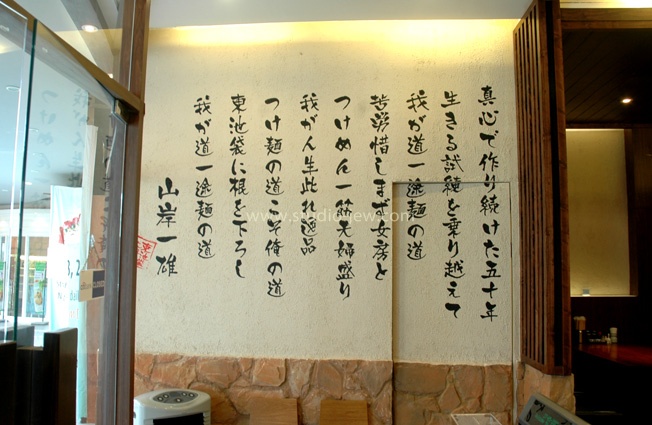 真心で作り続けた五十年
生きる試練を乗り越えて
我が道一途麺の道
苦労惜しまず女房と
つけめん一筋夫婦盛り
我が人生此れ逸品
つけ麺の道こそ俺の道
東池袋に根を下ろし
我が道一途麺の道
山岸一雄
www.studiojew.com